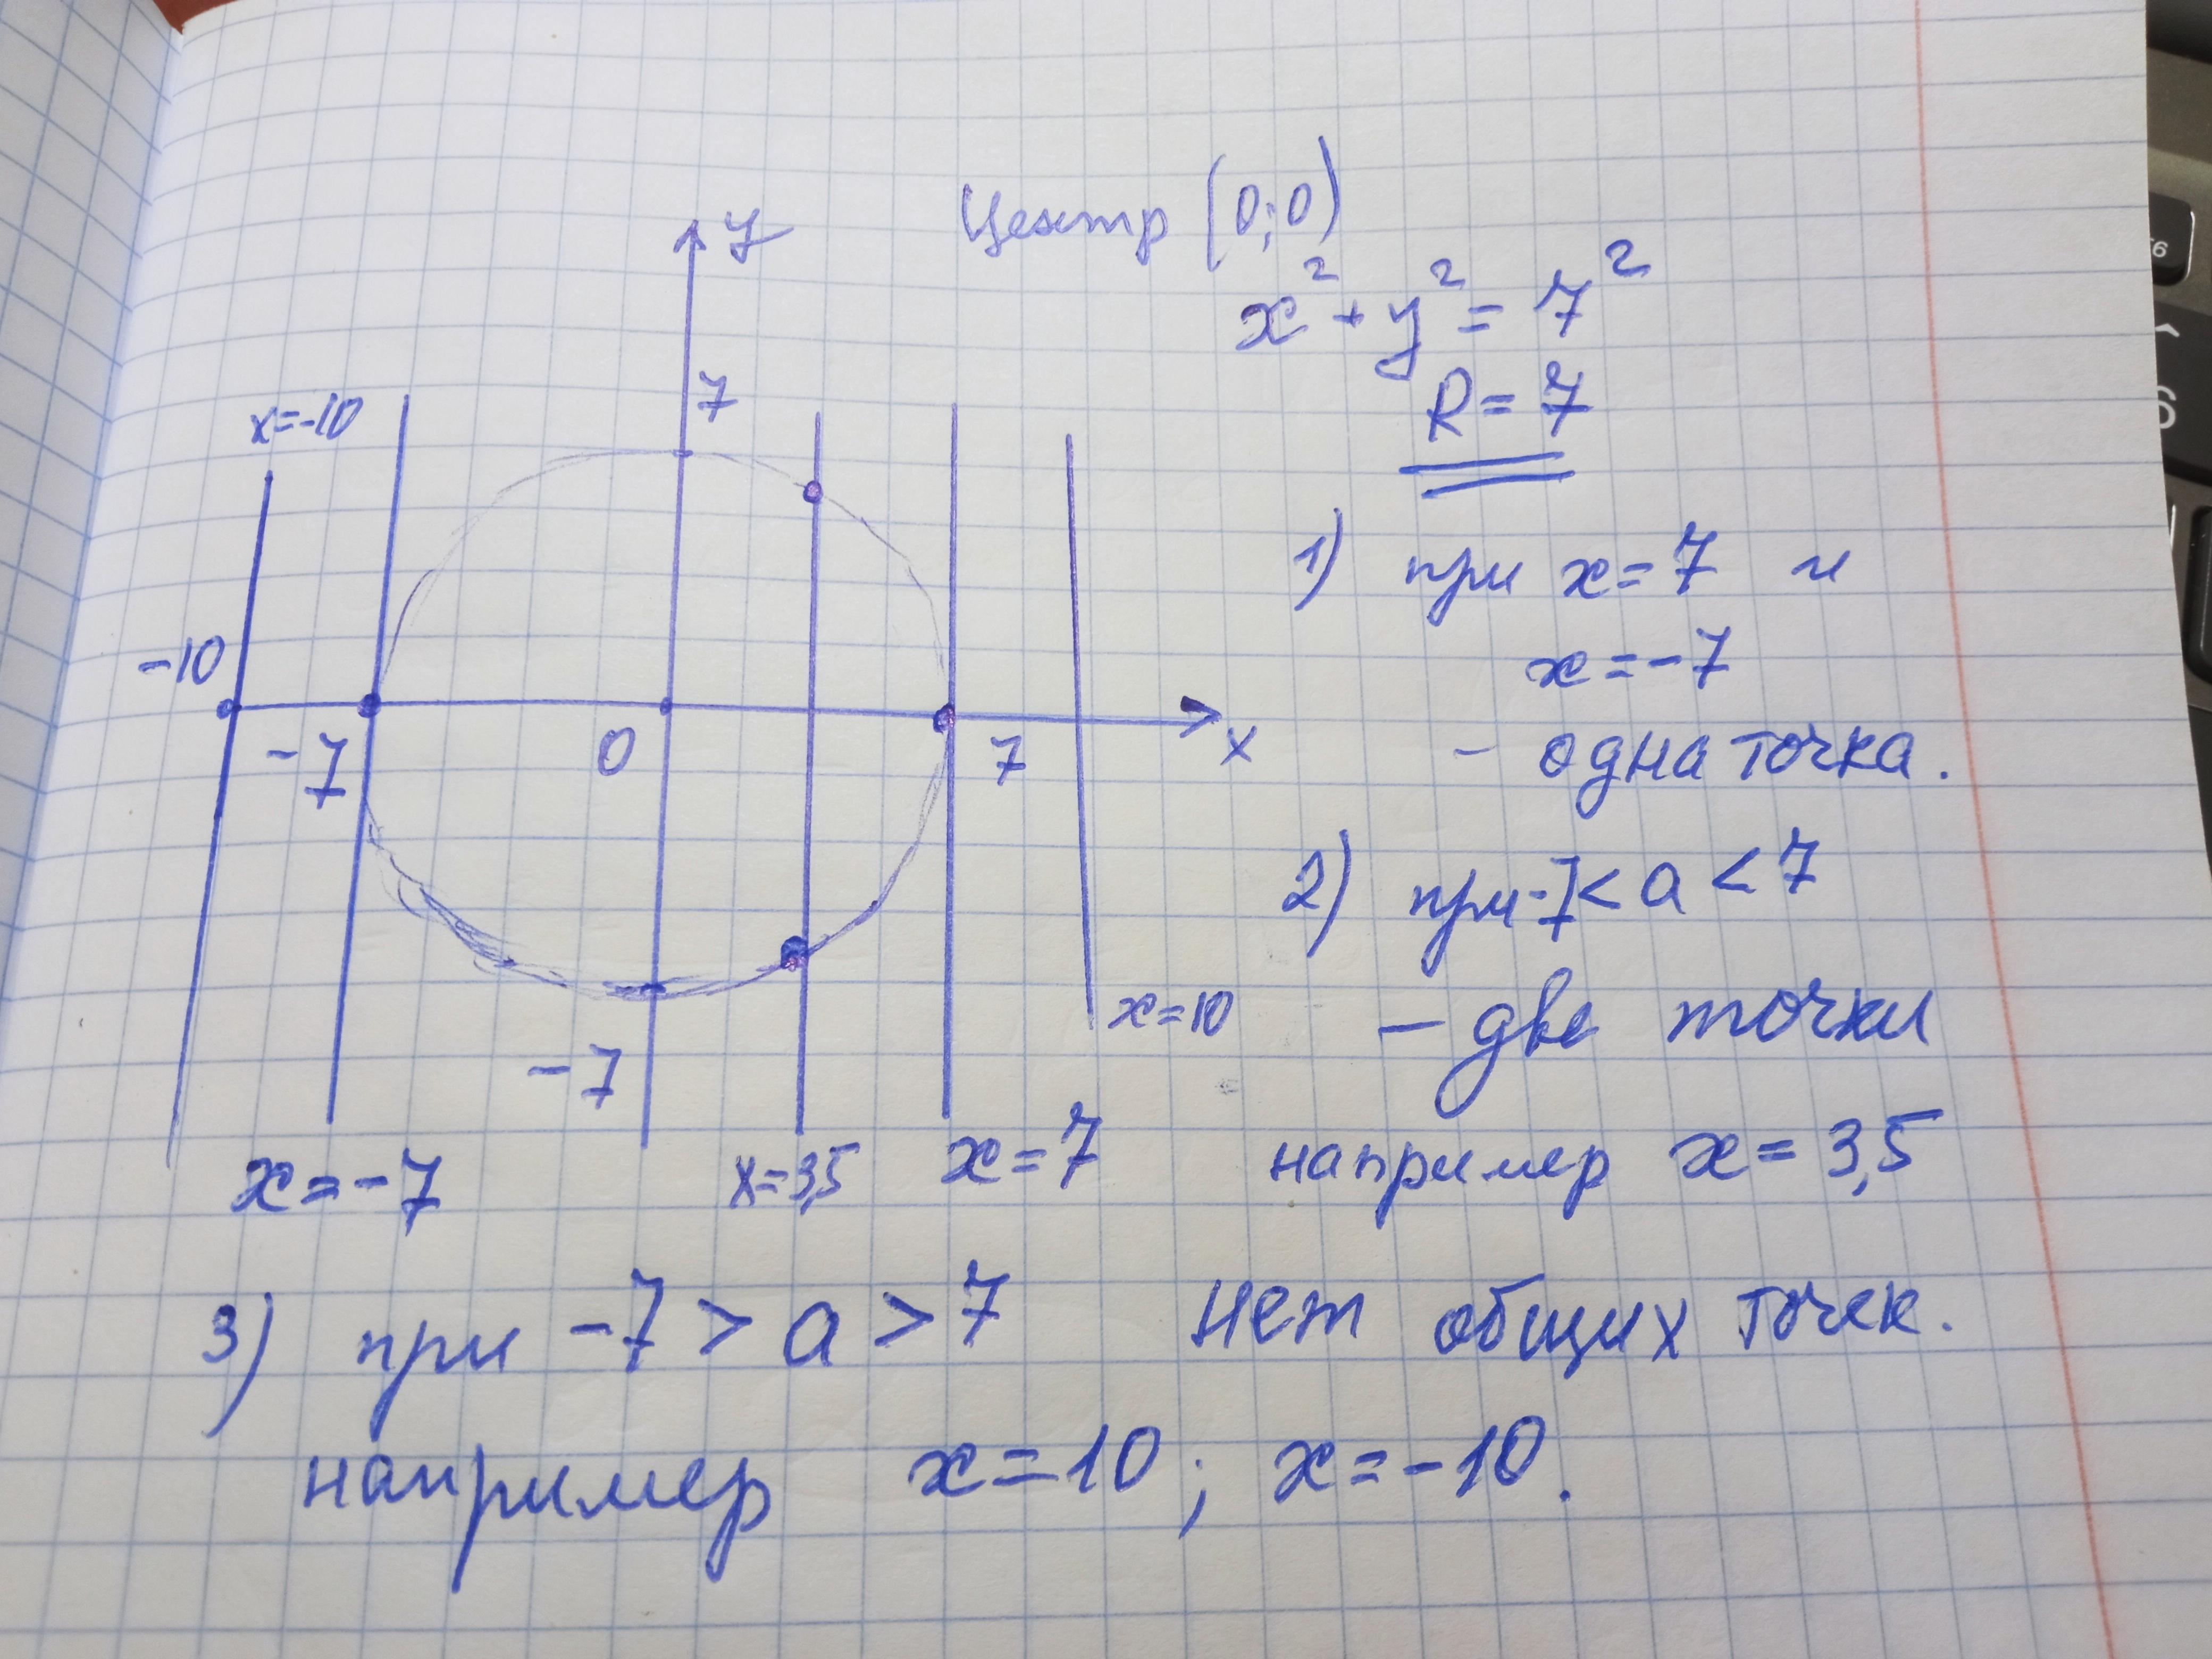 Центр (0;0)
x² + y² = 7²
R = 7
y
7
x=-10
-10
-7
0
7
x
-7
x=10
x=-7
x=3,5
x=7
1) при x=7 и
x=-7
- одна точка.
2) при -7<a<7
- две точки
например x=3,5
3) при -7>a>7 нет общих точек.
например x=10; x=-10.